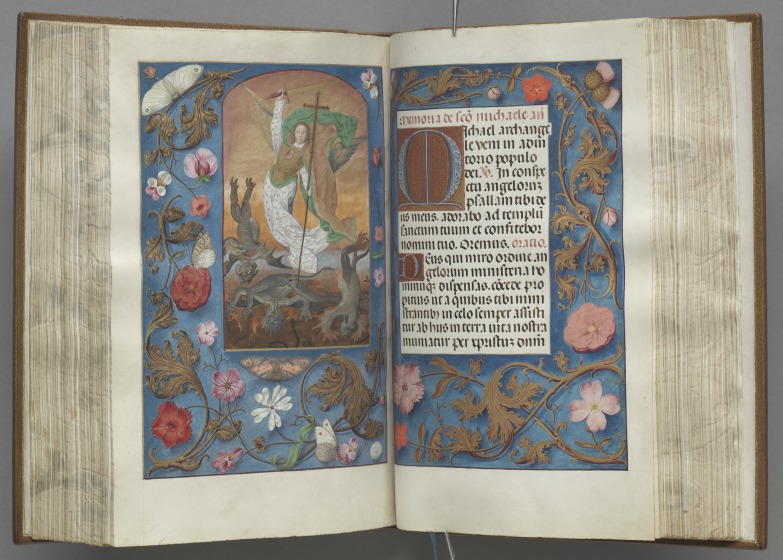 Memoria de sco michaele. an
Michael archange
le veni in adiu
torio populo
dei. V. In conspe
ctu angeloruz
psallam tibi de
us meus. adorabo ad templu
sanctum tuum et confitebor
nomini tuo. Oremus. oratio.
Deus qui miro ordine an
gelorum ministeria ho
minuqz dispensas. cocede pro
pitius ut a quibus tibi mini
strantibz in celo semper assisti
tur ab hiis in terra vita nostra
muniatur per xpristuz dnm